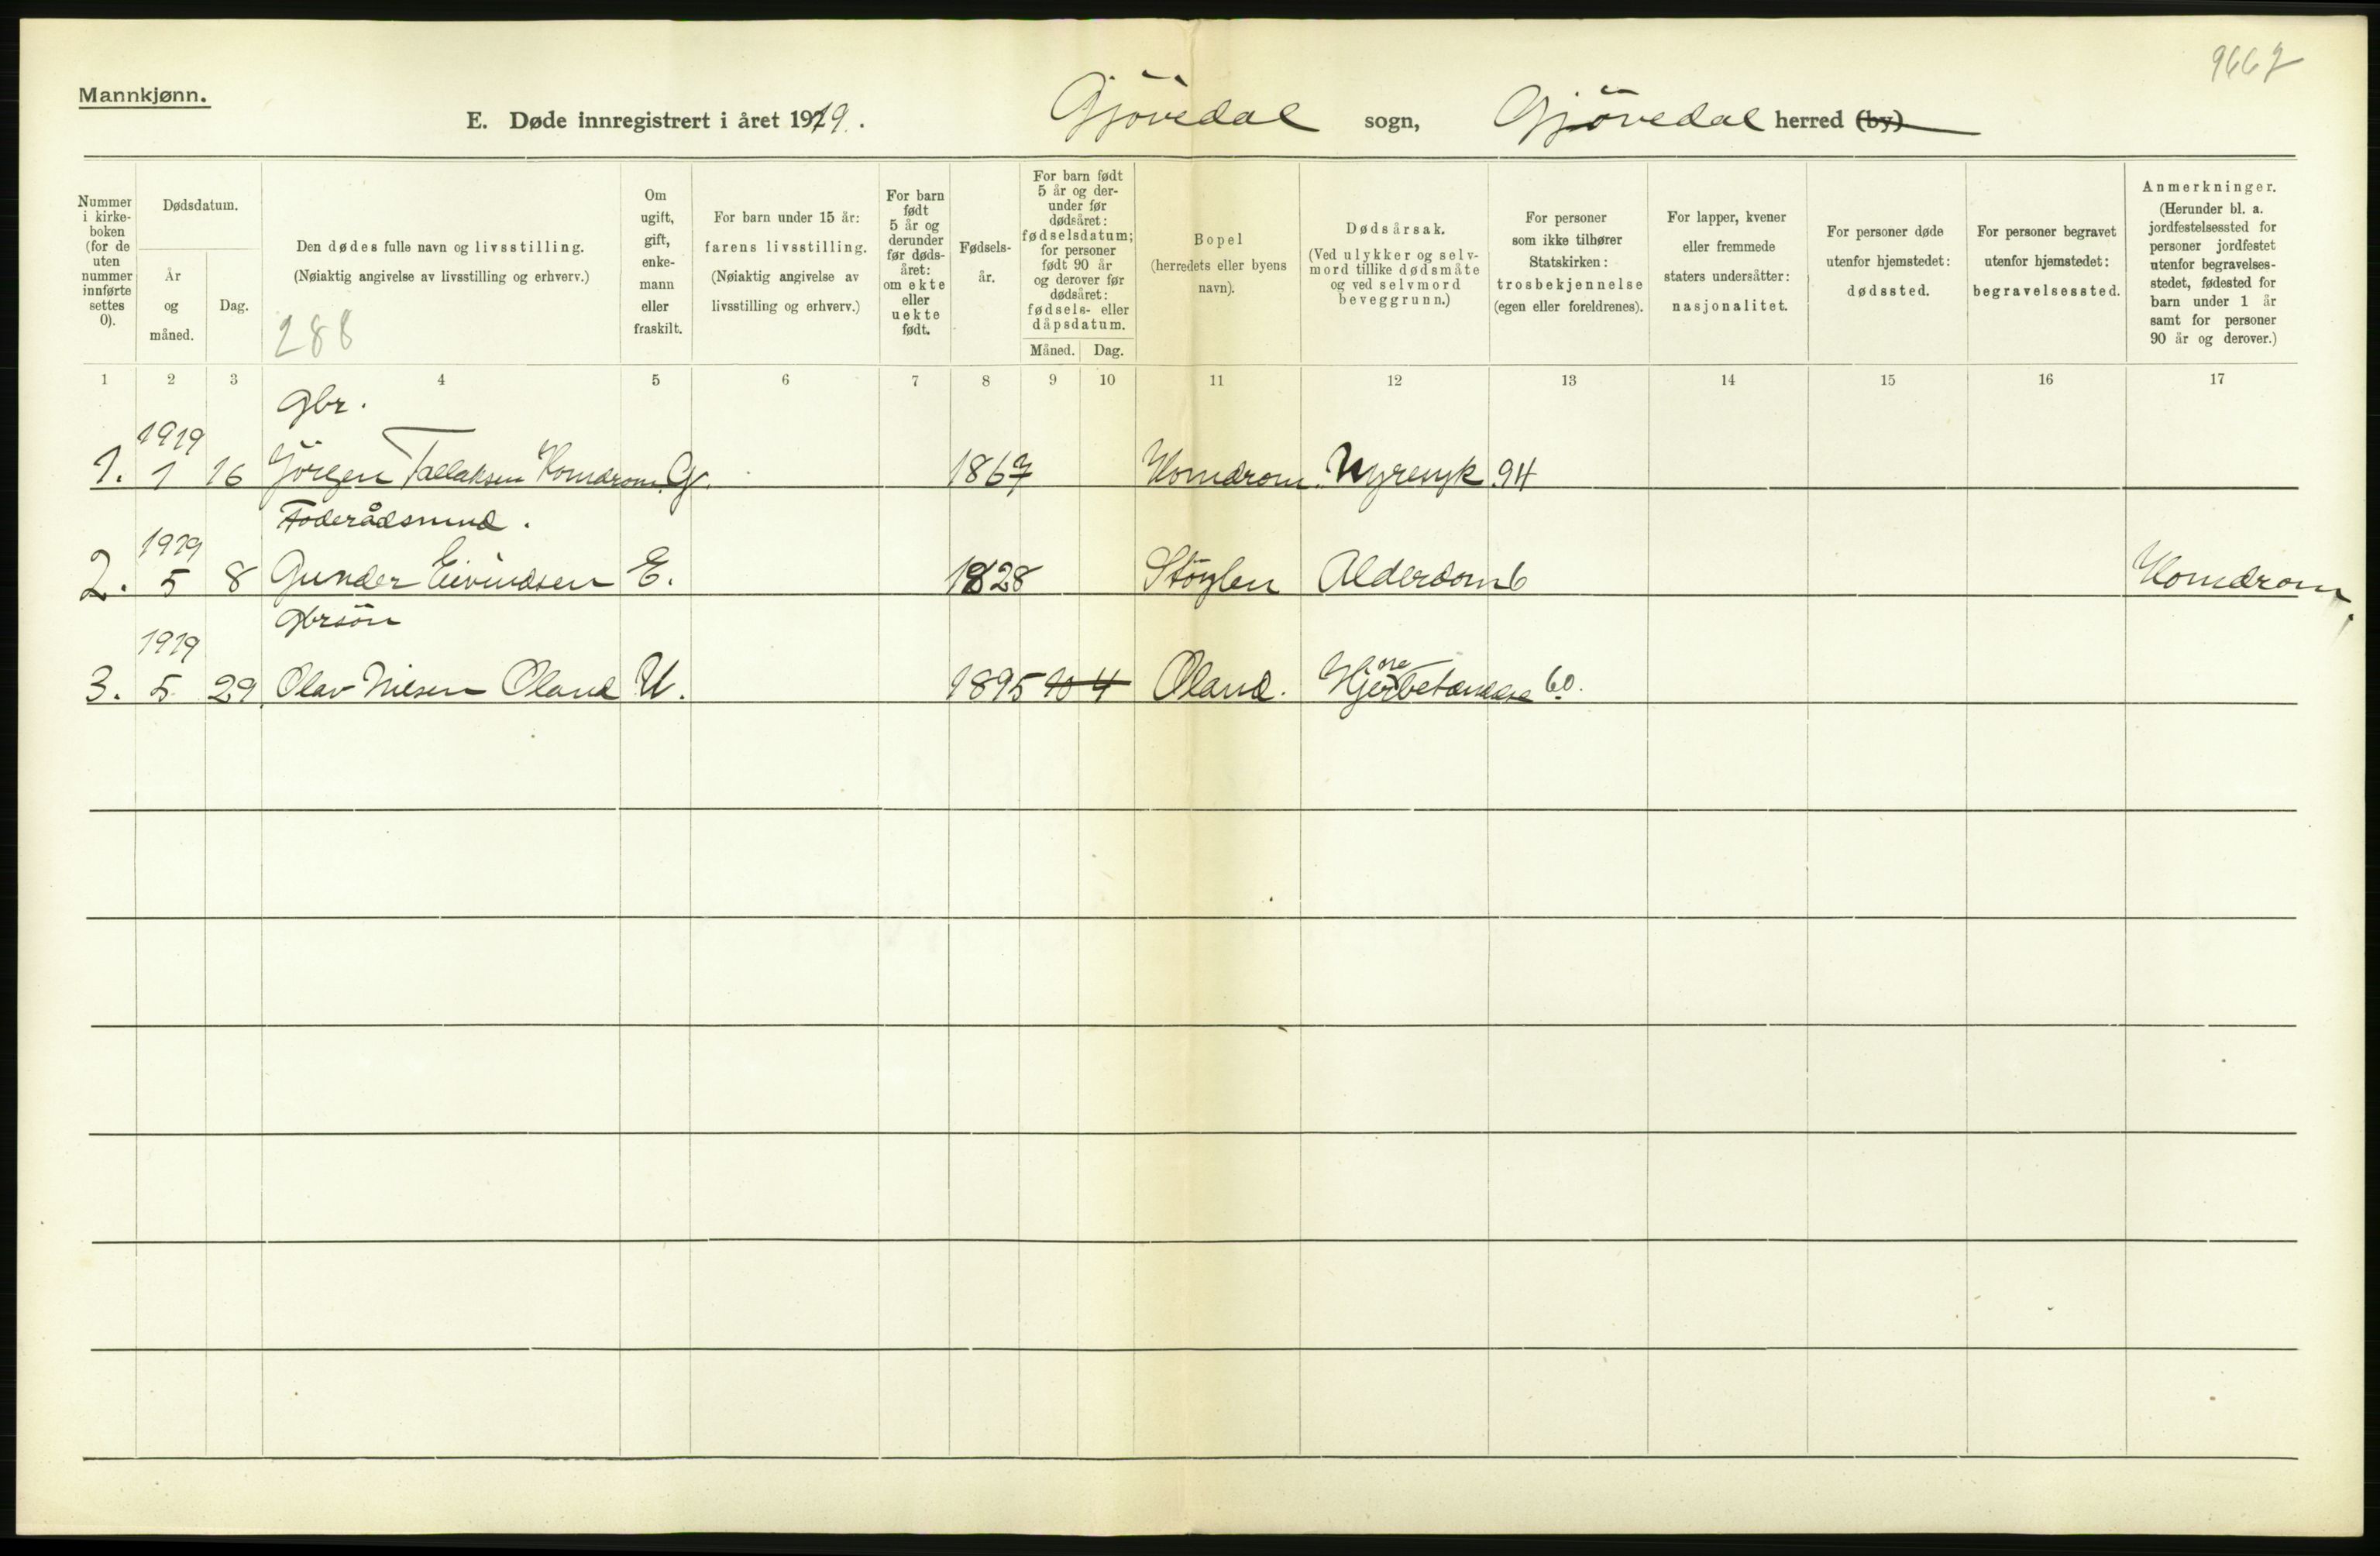 9667
Mannkjønn.
E. Døde innregistrert i året 1919. Gjövedal sogn, Gjövedal herred (by)
Nummer i kirke- boken (for de uten nummer innførte settes 0).
Dødsdatum.
År og måned.
Dag.
Den dødes fulle navn og livsstilling.
(Nøiaktig angivelse av livsstilling og erhverv.)
288
Om ugift, gift, enke- mann eller fraskilt.
For barn under 15 år:
farens livsstilling.
(Nøiaktig angivelse av
livsstilling og erhverv.)
For barn født 5 år og derunder før døds- året: om ekte eller uekte født.
Fødsels- år.
For barn født 5 år og der- under før dødsåret: fødselsdatum; for personer født 90 år og derover før dødsåret: fødsels- eller dåpsdatum.
Måned. Dag.
Bopel
(herredets eller byens
navn).
Dødsårsak.
(Ved ulykker og selv-
mord tillike dødsmåte
og ved selvmord
beveggrunn.)
For personer
som ikke tilhører
Statskirken:
trosbekjennelse
(egen eller foreldrenes).
For lapper, kvener
eller fremmede
staters undersåtter:
nasjonalitet.
For personer døde
utenfor hjemstedet:
dødssted.
For personer begravet
utenfor hjemstedet:
begravelsessted.
Anmerkninger.
(Herunder bl. a.
jordfestelsessted for
personer jordfestet
utenfor begravelses-
stedet, fødested for
barn under 1 år
samt for personer
90 år og derover.)
1 2 3 4 5 6 7 8 9 10 11 12 13 14 15 16 17
gbr.
1919
1. 1 16 Jörgen Tallaksen Homdrom G. 1867 Homdrom. Nyresyk 94
Foderådsmnd.
1919
2. 5 8 Gunder Eivindsen E. 1828 Stöylen Alderdom 6 Homdrom.
gbrsön
1919
3. 5 29 Olav Nilsen Öland U. 1895 10 4 Öland. Hjernebetændelse 60.